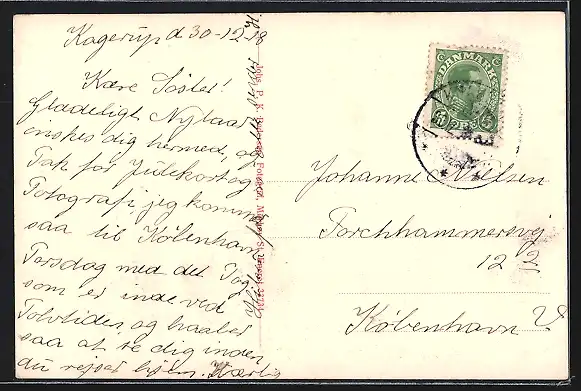 Kagerup d 30-12-18
Kære Søster!
Glædeligt Nytaar
ønskes dig hermed, og
Tak for Julekort og
Fotografi, jeg kommer
saa til København
Torsdag med det Tog
som er inde ved
Tolvtiden, og haaber
saa at se dig inden
du rejser hjem. Hærlig
DANMARK
5 ØRE 5
Johanne Nielsen
Forchhammersvej
12 2
København V.